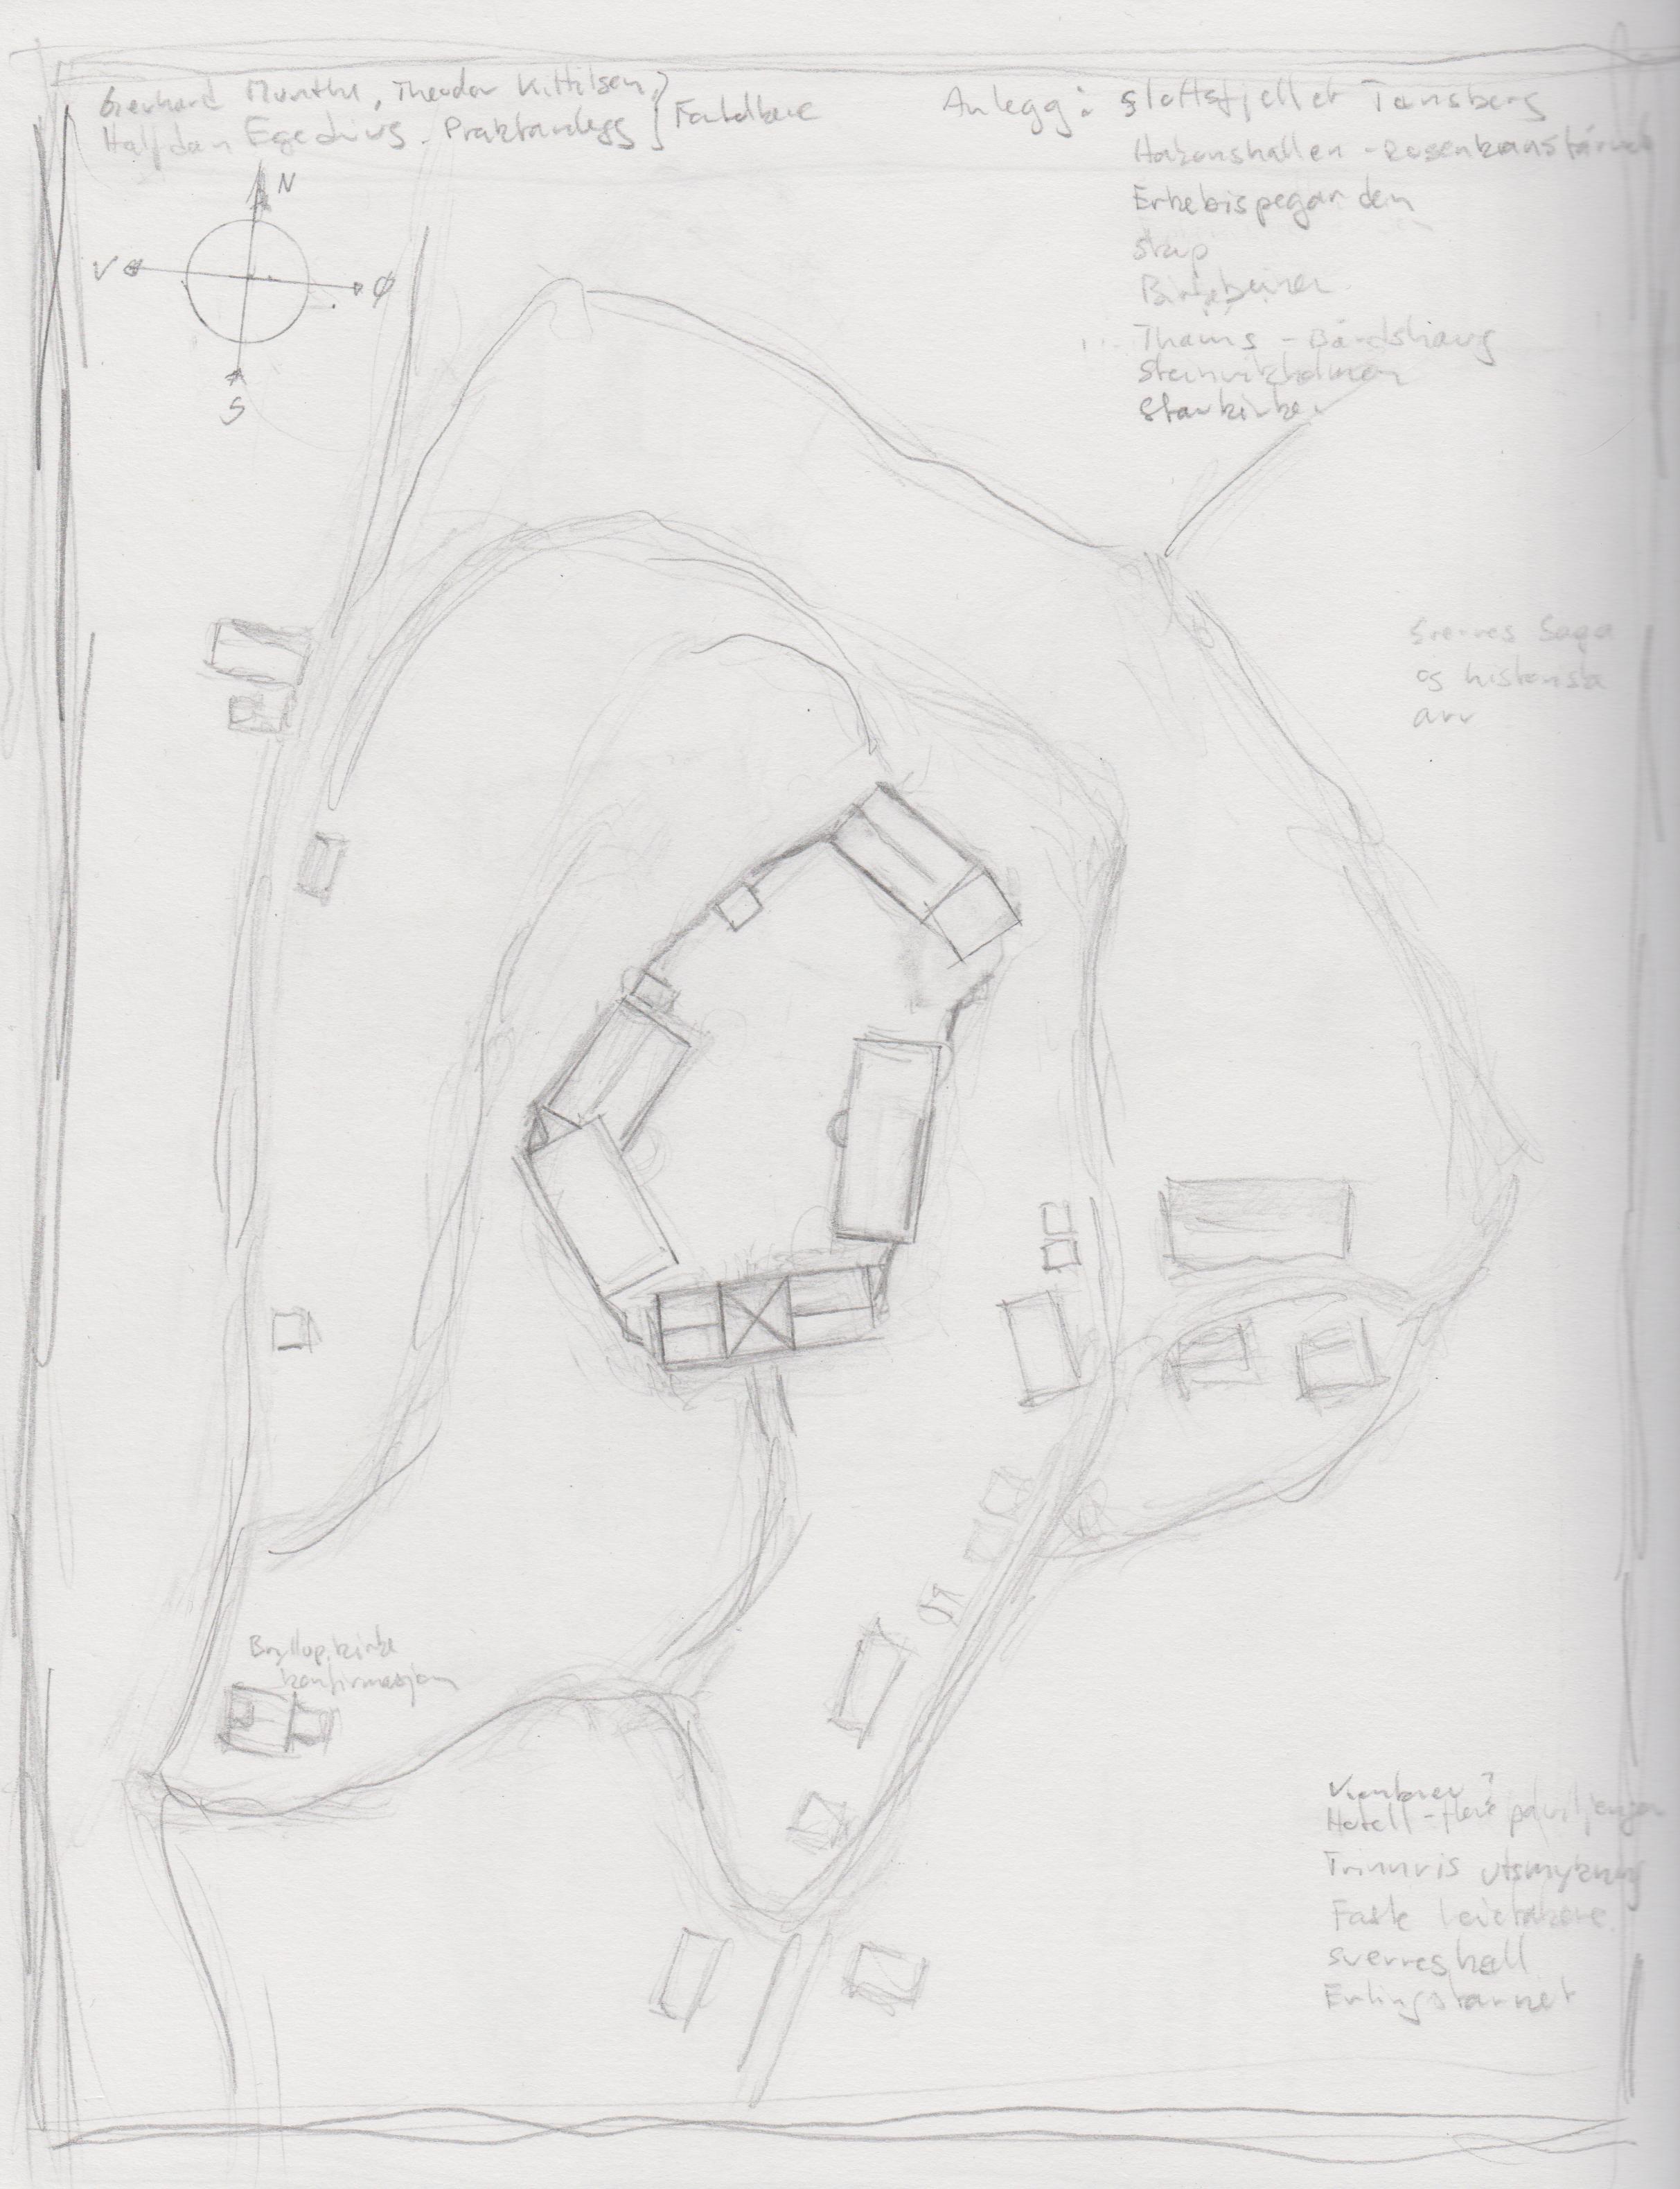 Gerhard Munthe, Theodor Kittilsen,
Halfdan Egedius. Praktanlegg
Anlegg: Slottsfjellet Tønsberg
Håkonshallen - Rosenkranstårnet
Erkebispegården
Skip
Birkebeiner
Thams - Bårdshaug
Steinvikholmen
Stavkirke
N
V
Ø
S
Sverres Saga
og historiske
arv
Bryllup, kirke
konfirmasjon
Hotell - flere paviljonger
Utsmykning
Faste leietakere
Sverreshall
Erlingstårnet